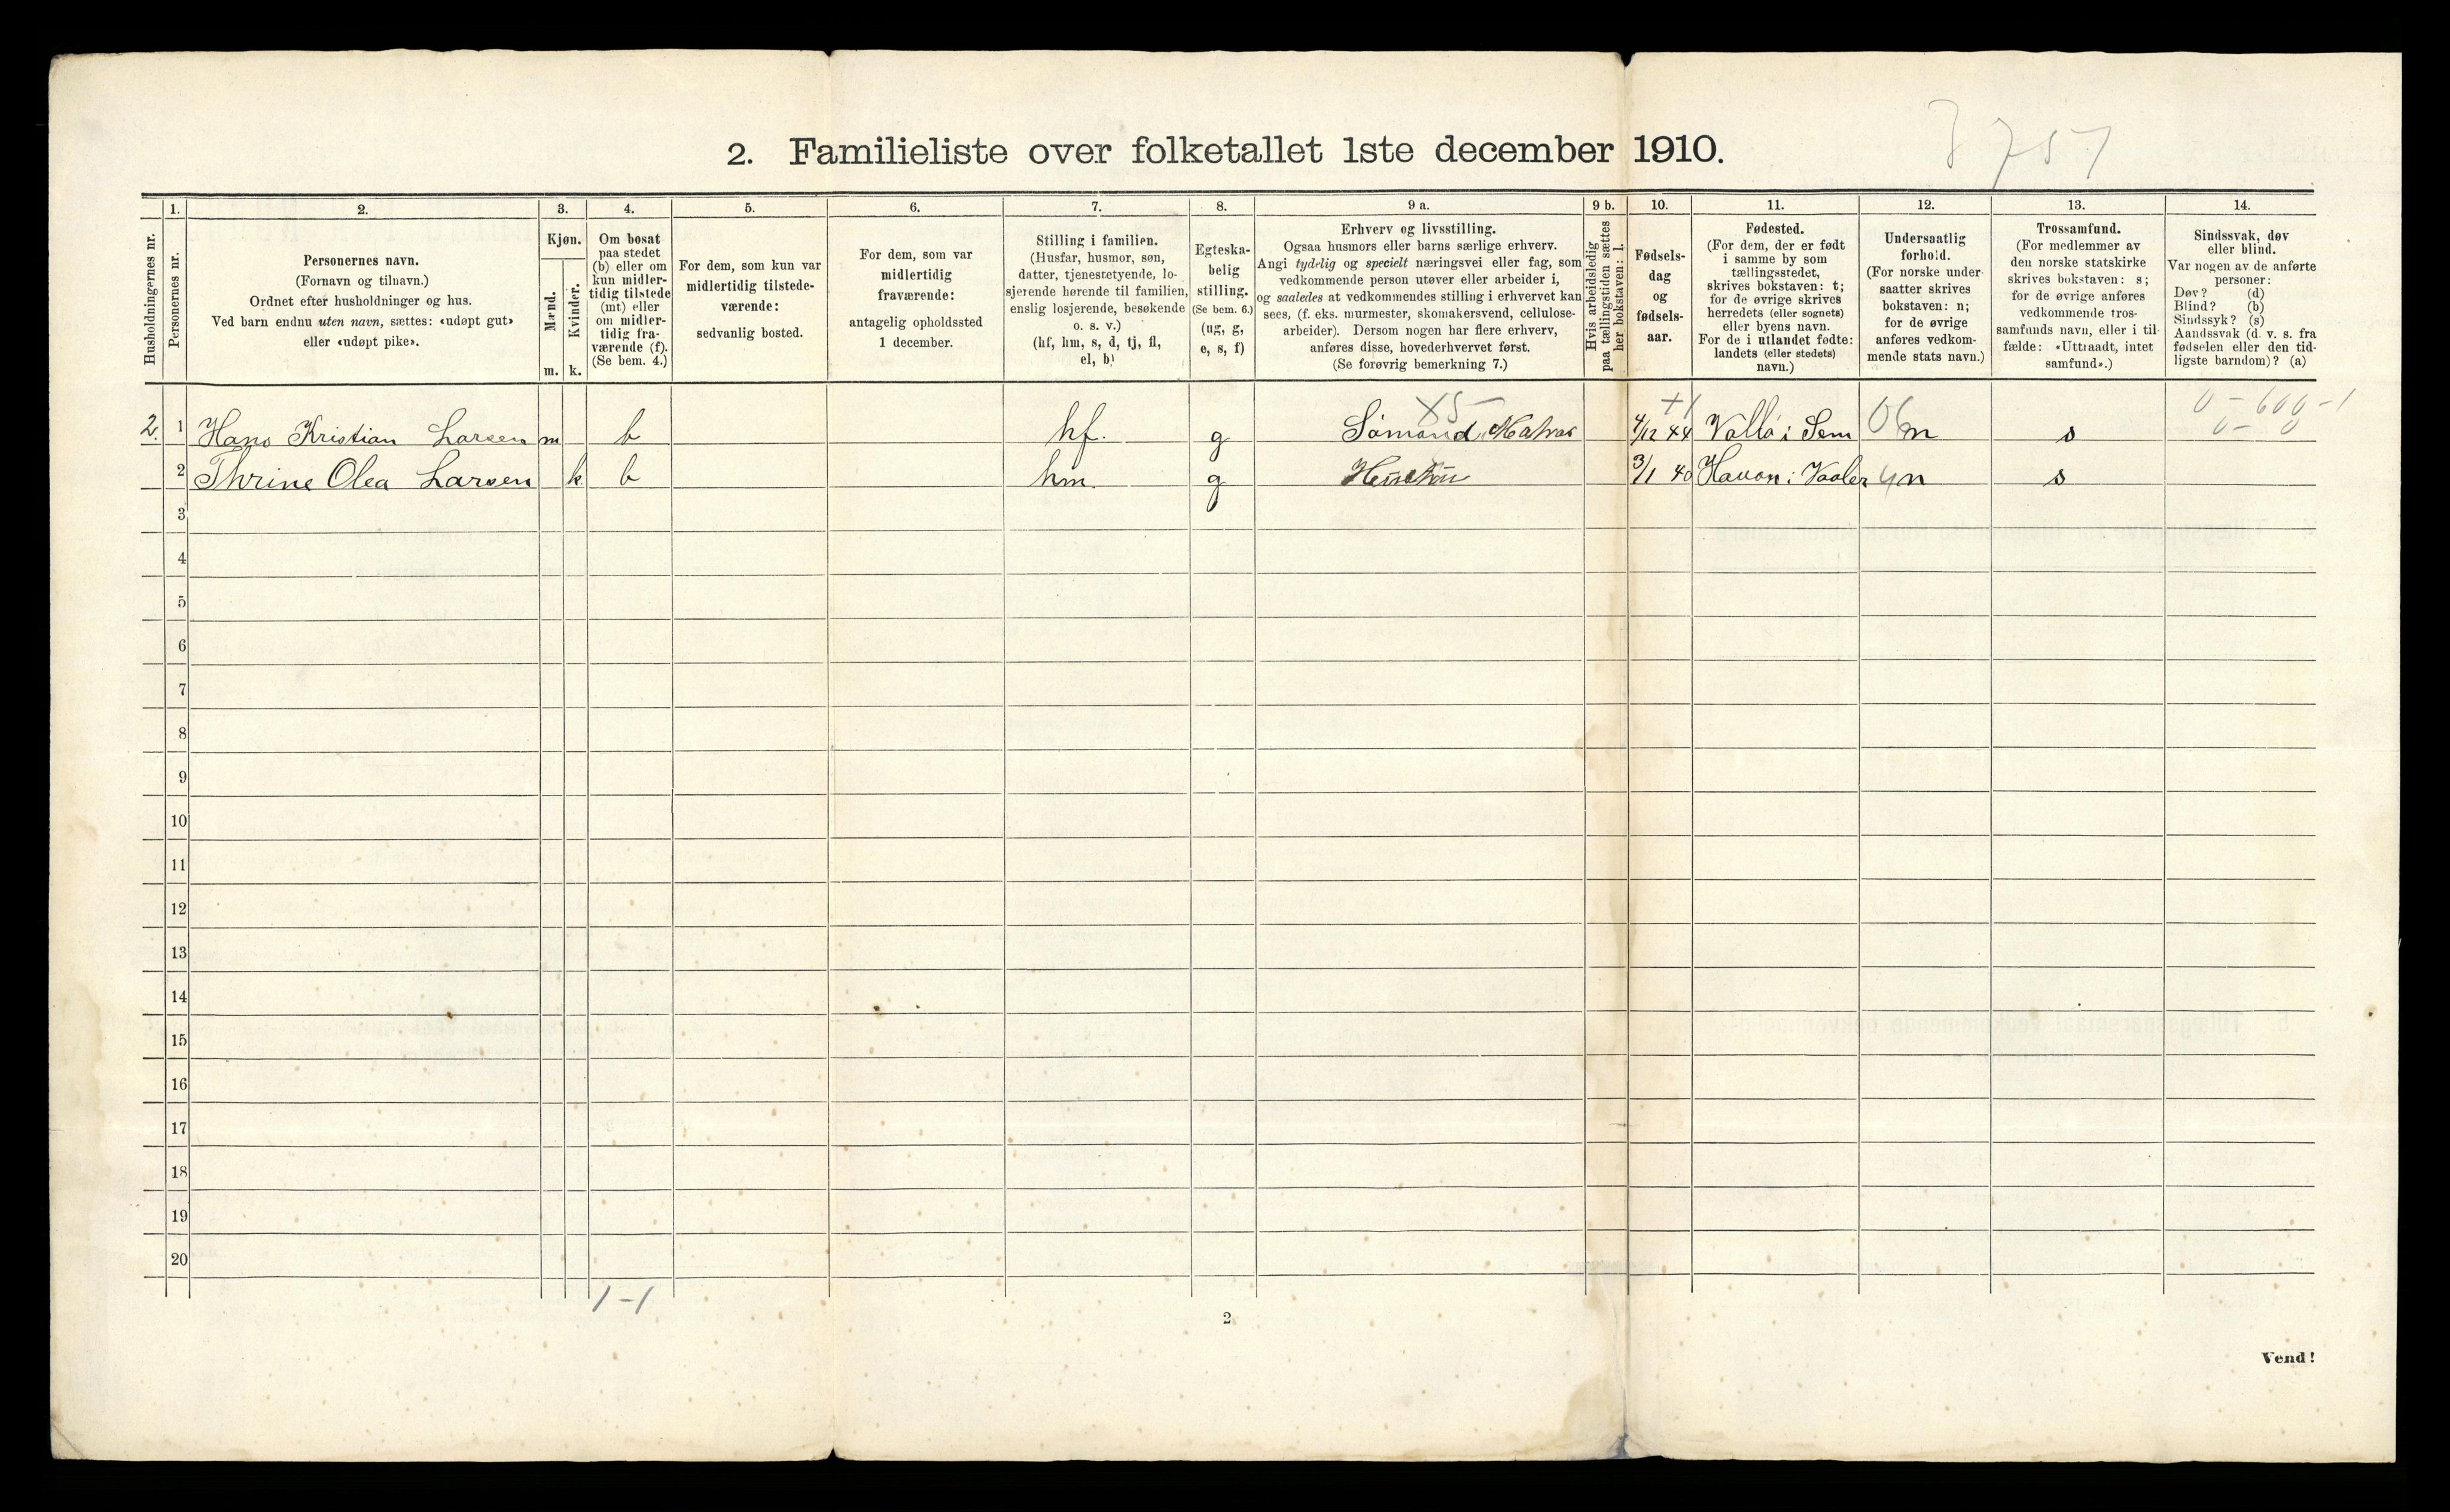 3757
2. Familieliste over folketallet 1ste december 1910.
1. 2. 3. 4. 5. 6. 7. 8. 9 a. 9 b. 10. 11. 12. 13. 14.
Husholdningernes nr.
Personernes nr.
Personernes navn.
(Fornavn og tilnavn.)
Ordnet efter husholdninger og hus.
Ved barn endnu uten navn, sættes: «udøpt gut»
eller «udøpt pike».
Kjøn.
Mænd.
Kvinder.
m. k.
Om bosat
paa stedet
(b) eller om
kun midler-
tidig tilstede
(mt) eller
om midler-
tidig fra-
værende (f).
(Se bem. 4.)
For dem, som kun var
midlertidig tilstede-
værende:
sedvanlig bosted.
For dem, som var
midlertidig
fraværende:
antagelig opholdssted
1 december.
Stilling i familien.
(Husfar, husmor, søn,
datter, tjenestetyende, lo-
sjerende hørende til familien,
enslig losjerende, besøkende
o. s. v.)
(hf, hm, s, d, tj, fl,
el, b)
Egteska-
belig
stilling.
(Se bem. 6.)
(ug, g,
e, s, f)
Erhverv og livsstilling.
Ogsaa husmors eller barns særlige erhverv.
Angi tydelig og specielt næringsvei eller fag, som
vedkommende person utøver eller arbeider i,
og saaledes at vedkommendes stilling i erhvervet kan
sees, (f. eks. murmester, skomakersvend, cellulose-
arbeider). Dersom nogen har flere erhverv,
anføres disse, hovederhvervet først.
(Se forøvrig bemerkning 7.)
Hvis arbeidsledig
paa tællingstiden sættes
her bokstaven: l.
Fødsels-
dag
og
fødsels-
aar.
Fødested.
(For dem, der er født
i samme by som
tællingsstedet,
skrives bokstaven: t;
for de øvrige skrives
herredets (eller sognets)
eller byens navn.
For de i utlandet fødte:
landets (eller stedets)
navn.)
Undersaatlig
forhold.
(For norske under-
saatter skrives
bokstaven: n;
for de øvrige
anføres vedkom-
mende stats navn.)
Trossamfund.
(For medlemmer av
den norske statskirke
skrives bokstaven: s;
for de øvrige anføres
vedkommende tros-
samfunds navn, eller i til-
fælde: «Uttraadt, intet
samfund».)
Sindssvak, døv
eller blind.
Var nogen av de anførte
personer:
Døv? (d)
Blind? (b)
Sindssyk? (s)
Aandssvak (d. v. s. fra
fødselen eller den tid-
ligste barndom)? (a)
X5 +1 0-600-1
2. 1 Hans Kristian Larsen m b hf. g Sömand, Matros 4/12 44 Vallö i Sem 06 n s 0- 0
2 Thrine Olea Larsen k b hm. g 3/1 40 Havon i Vaaler n s
3
4
5
6
7
8
9
10
11
12
13
14
15
16
17
18
19
20
1-1
2
Vend!